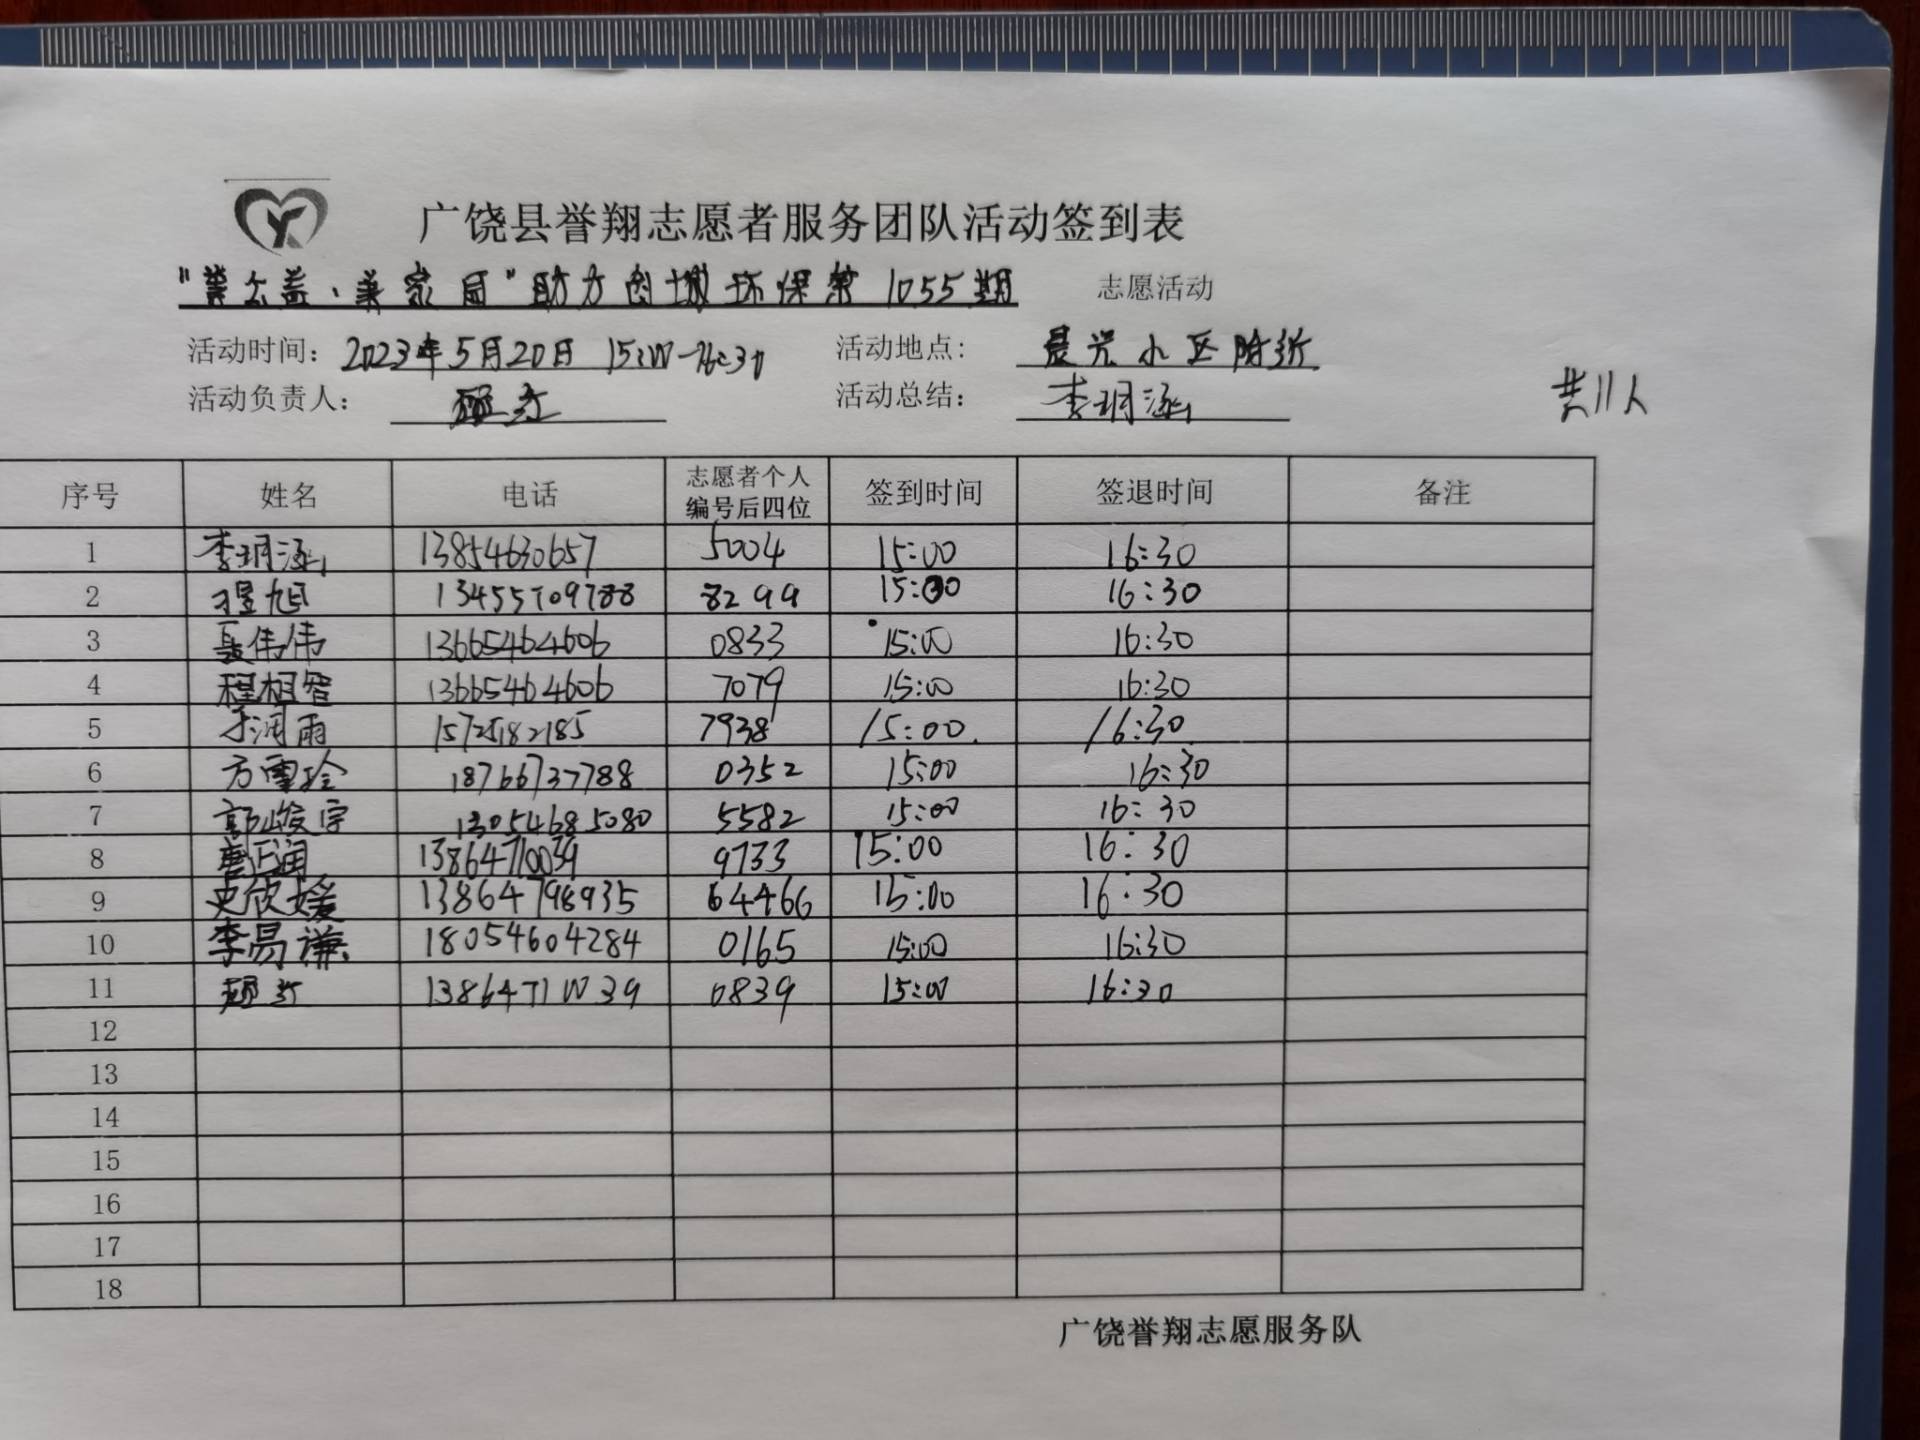 广饶县誉翔志愿者服务团队活动签到表
公益、美家园"助力创城环保第1055期 志愿活动
活动时间: 2023年5月20日 15:00-16:30 活动地点: 晨光小区附近
活动负责人: 活动总结: 李玥涵 共11人
序号 姓名 电话 志愿者个人编号后四位 签到时间 签退时间 备注
1 李玥涵 13854630657 5004 15:00 16:30
2 8299 15:00 16:30
3 聂伟伟 13665464606 0833 15:00 16:30
4 程相智 13665464606 7079 15:00 16:30
5 润雨 15725182185 7938 15:00 16:30
6 方雪玲 18766737788 0352 15:00 16:30
7 郭峻宇 13054685080 5582 15:00 16:30
8 唐正润 13864710039 9733 15:00 16:30
9 史欣媛 13864798935 64466 15:00 16:30
10 李易谦 18054604284 0165 15:00 16:30
11 13864710039 0839 15:00 16:30
12
13
14
15
16
17
18
广饶誉翔志愿服务队